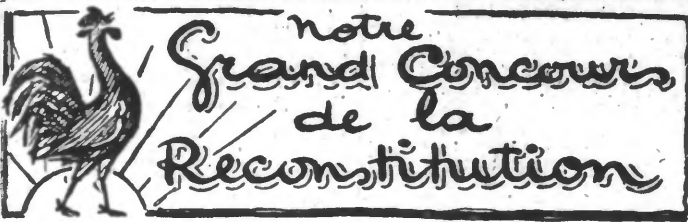 notre
Grand Concours
de la
Reconstitution